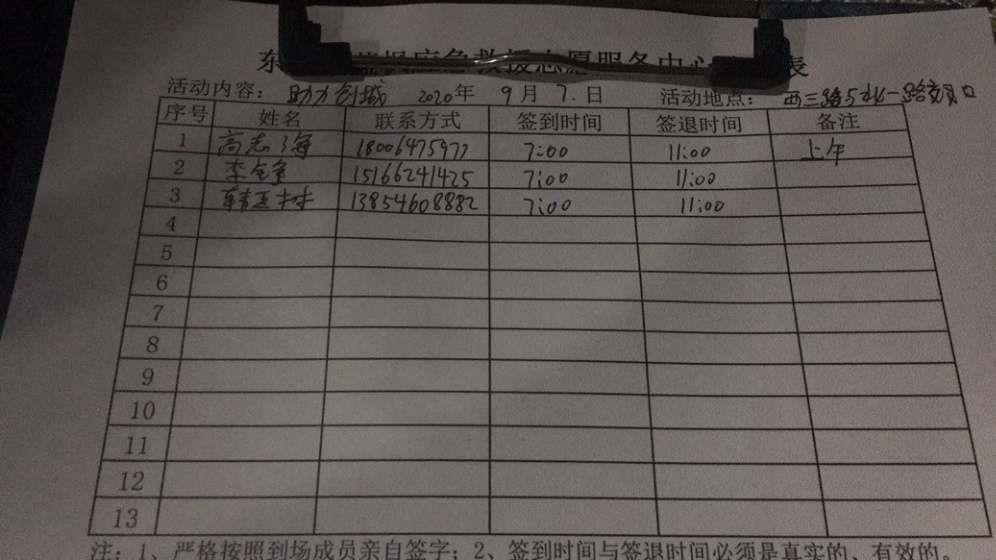 东 应急救援志愿服务中心 表
活动内容: 助力创城 2020年 9月 7.日 活动地点: 西三路与北一路交叉口
序号 姓名 联系方式 签到时间 签退时间 备注
1 高志海 18006475977 7:00 11:00 上午
2 李全争 15166241425 7:00 11:00
3 13854608882 7:00 11:00
4
5
6
7
8
9
10
11
12
13
注: 1、严格按照到场成员亲自签字; 2、签到时间与签退时间必须是真实的、有效的。